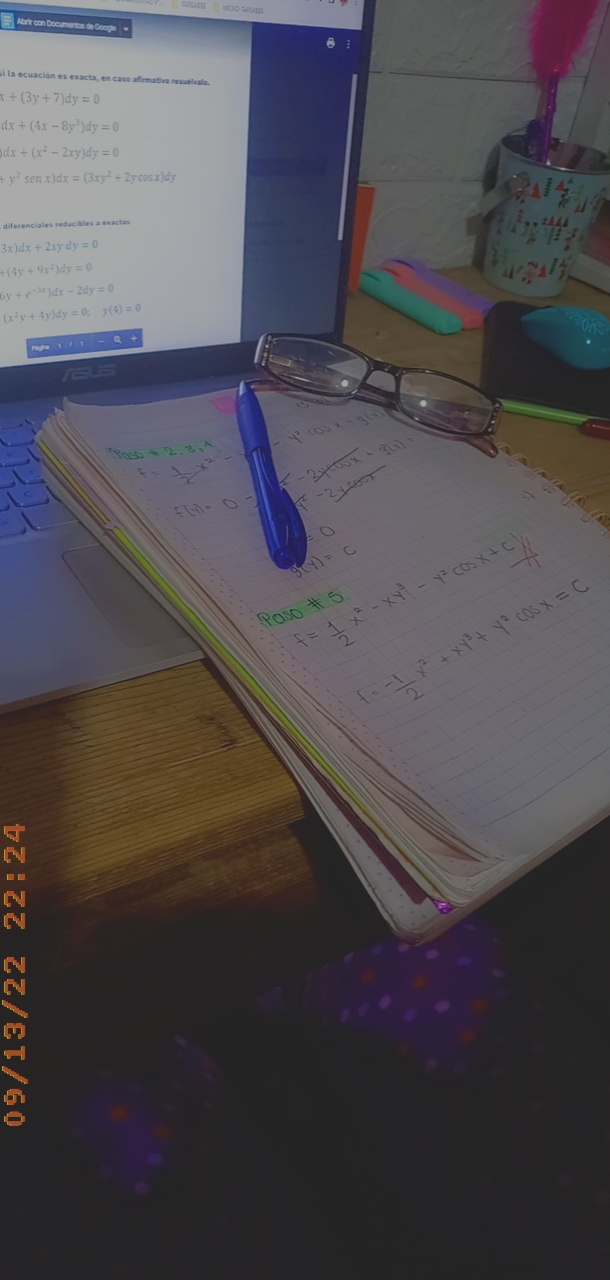 Abrir con Documentos de Google
TAREAS
si la ecuación es exacta, en caso afirmativo resuélvalo.
x + (3y + 7)dy = 0
dx + (4x − 8y³)dy = 0
)dx + (x² − 2xy)dy = 0
+ y² sen x)dx = (3xy² + 2y cos x)dy
diferenciales reducibles a exactas
3x)dx + 2xy dy = 0
+(4y + 9x²)dy = 0
6y + e⁻³ˣ)dx − 2dy = 0
(x²y + 4y)dy = 0; y(4) = 0
Página 1 / 1 − +
ASUS
Paso # 2, 3, 4
f = 1/2 x² - y² cos x + g(y)
f(y) = 0 - 2y cos x + g(y) =
- 2y cos x
= 0
g(y) = C
Paso # 5
f = 1/2 x² - xy³ - y² cos x + C //
f = -1/2 x² + xy³ + y² cos x = C
09/13/22 22:24